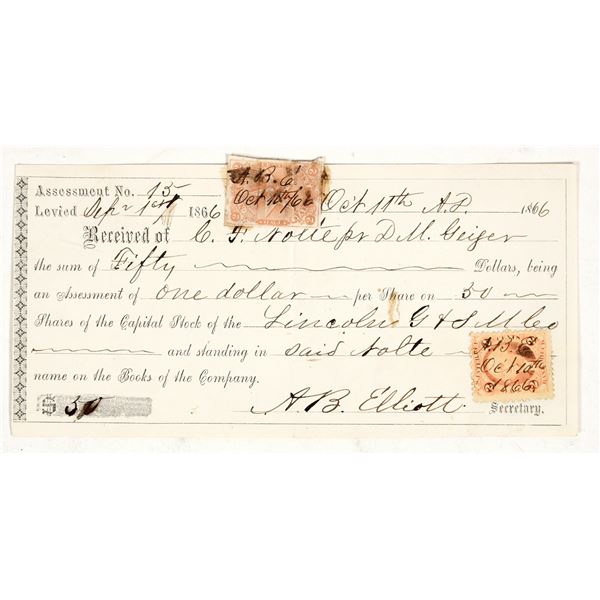 Assessment No. 15
A. B. E.
Oct 10th/66
Levied Sep 21st 1866 Oct 11th A.D. 1866
Received of C. F. Nolte pr D. M. Geiger
the sum of Fifty Dollars, being
an Assessment of one dollar per Share on 50
Shares of the Capital Stock of the Lincoln G & S M Co
and standing in said Nolte
name on the Books of the Company.
Oct 10th
1866
50 A. B. Elliott Secretary.